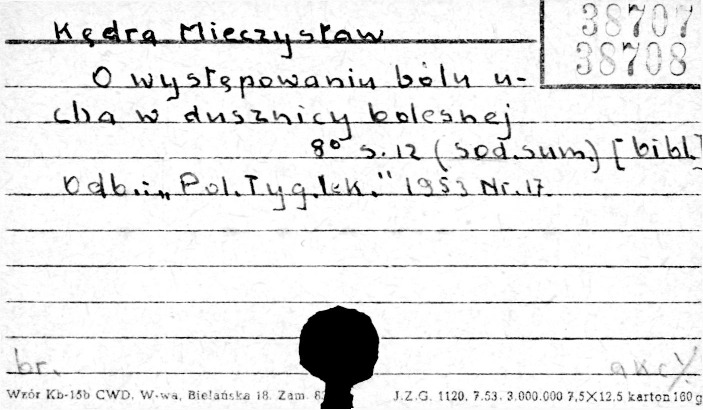 38707
38708
Kędra Mieczysław
O występowaniu bólu u-
cha w dusznicy bolesnej
8° s.12 (sod.sum.) [bibl.]
Odb.: „Pol.Tyg.lek." 1953 Nr.17.
br.
akc
Wzór Kb-15b CWD. W-wa, Bielańska 18. Zam. 8
J.Z.G. 1120. 7.53. 3.000.000 7,5×12,5 karton 160 g